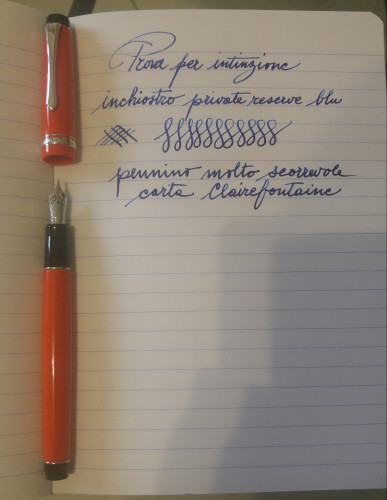 Prova per intinzione
inchiostro private reserve blu
pennino molto scorrevole
carta Clairefontaine